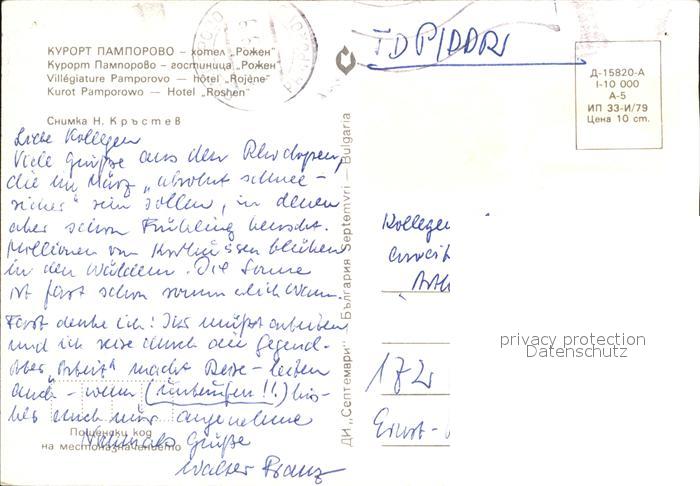 КУРОРТ ПАМПОРОВО — хотел „Рожен"
Курорт Пампорово — гостиница „Рожен"
Villégiature Pamporovo — hôtel „Rojène"
Kurot Pamporowo — Hotel „Roshen"
Снимка Н. Кръстев
Liebe Kollegen
Viele Grüße aus den Rhodopen,
die im März „absolut schnee-
sicher" sein sollen, in denen
aber schon Frühling herrscht.
Millionen von Krokussen blühen
in den Wäldern. Die Sonne
ist fast schon sommerlich warm.
Fast denke ich: Ihr müßt arbeiten
und ich reise durch die Gegend.
Aber „Arbeit" macht Reise-leiten
auch - wenn (unberufen!!) bis-
her auch nur angenehme
Пощенски код
на местоназначението
Nochmals Grüße
Walter Franz
ДИ „Септември" България Septemvri — Bulgaria
TDP/DDR
Д-15820-А
I-10 000
А-5
ИП 33-И/79
Цена 10 cm.
Kollege
172
Ernst-
privacy protection
Datenschutz